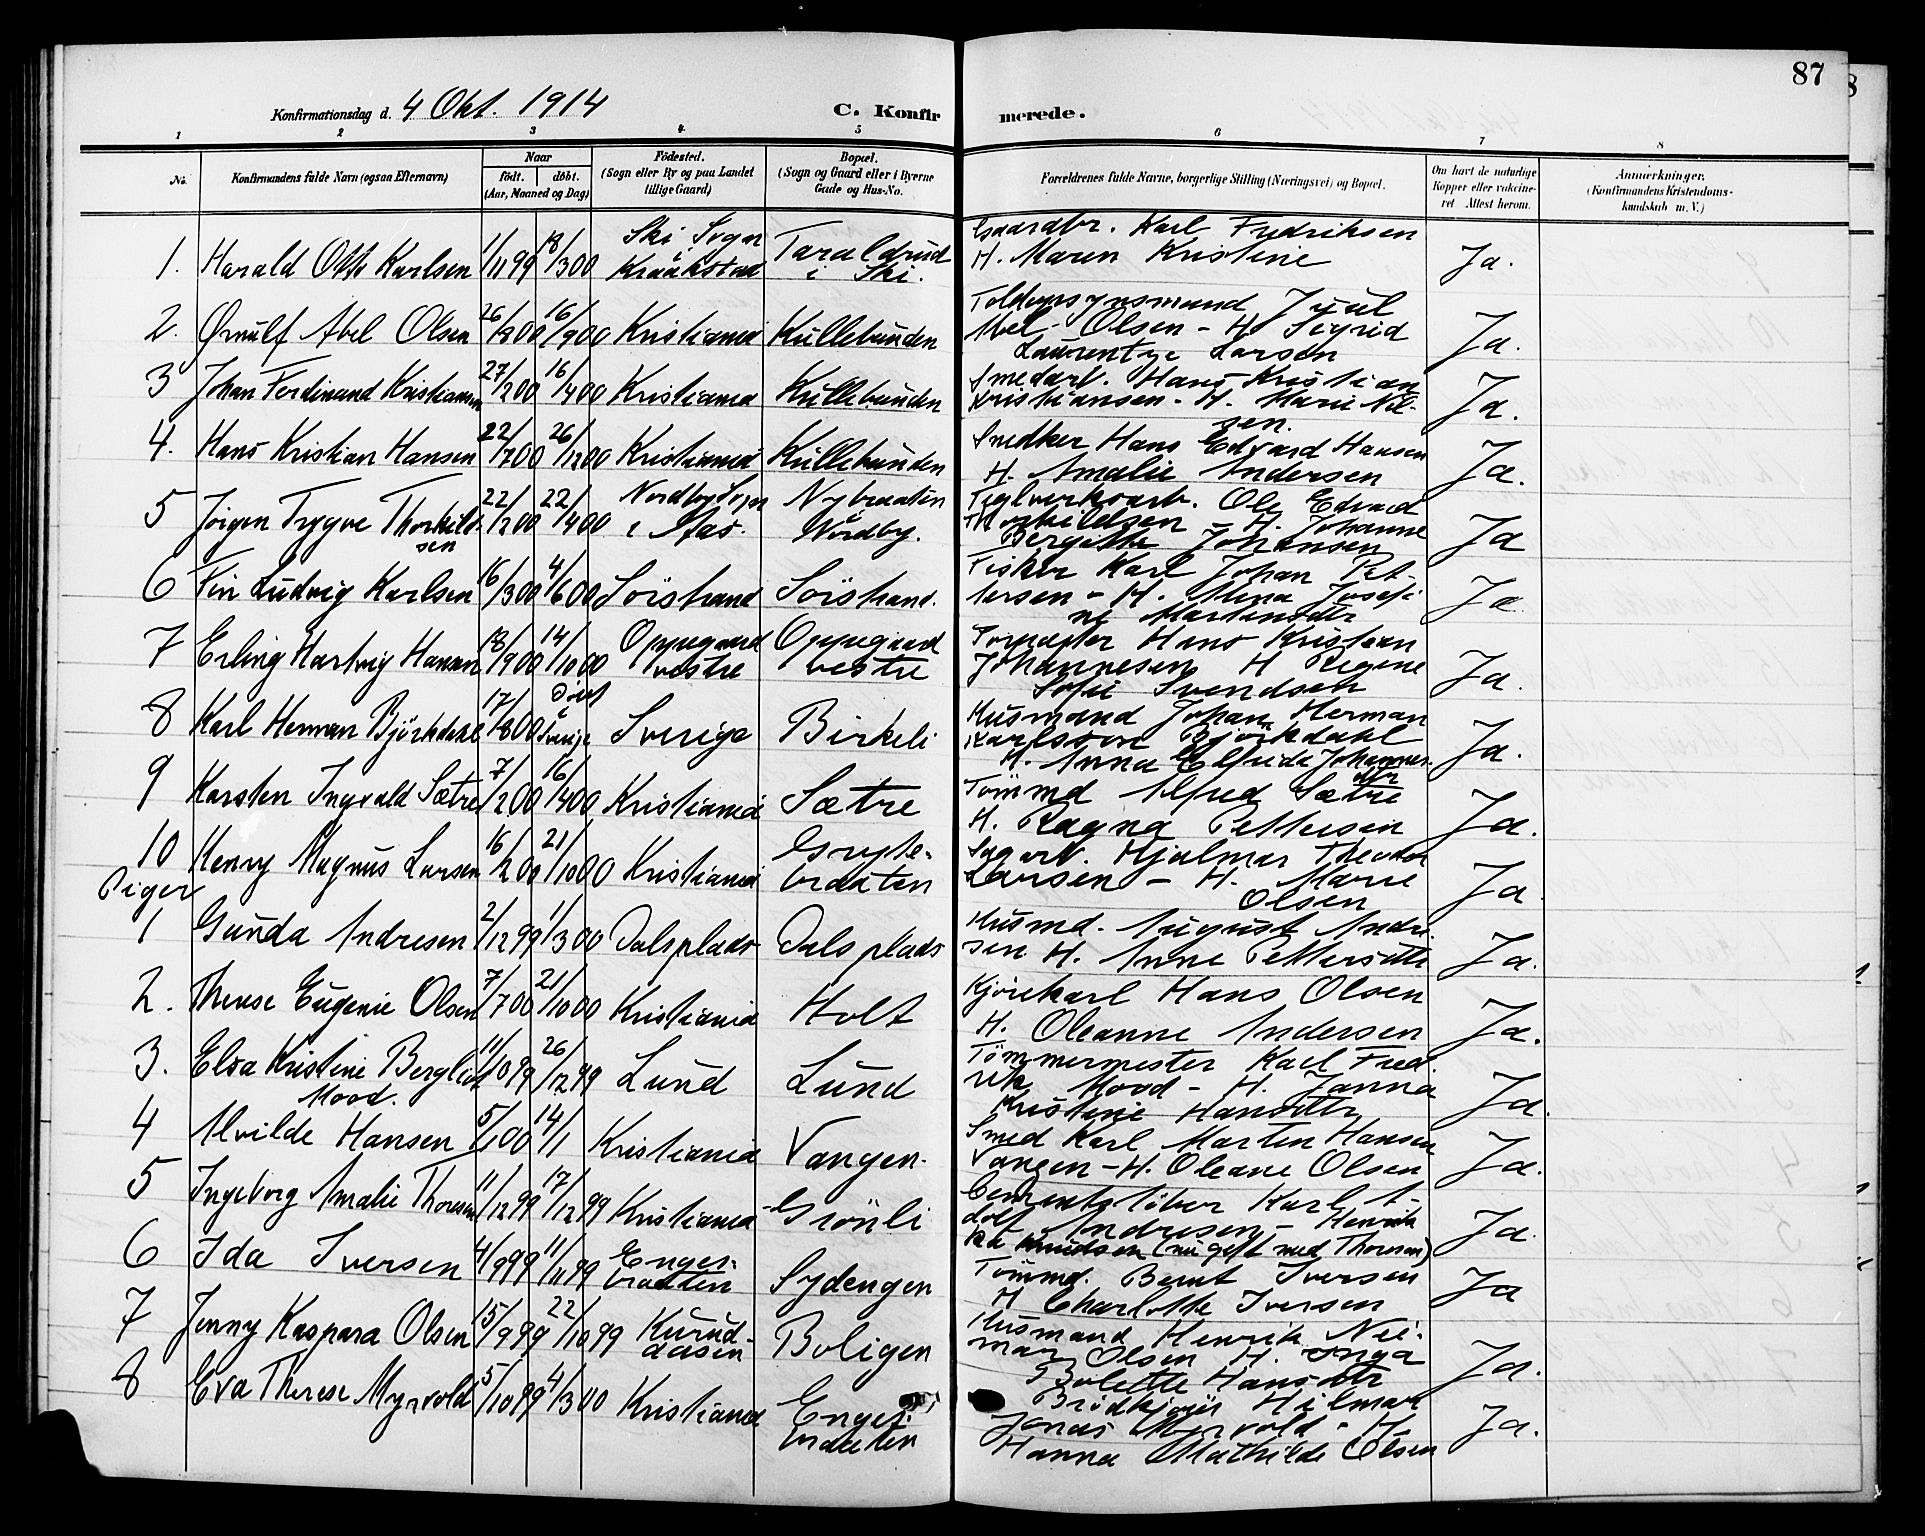 87
Konfirmationsdag d. 4 Okt. 1914 C. Konfirmerede.
1 2 3 4 5 6 7 8
No. Konfirmandens fulde Navn (ogsaa Efternavn) Naar født. døbt. (Aar, Maaned og Dag) Fødested. (Sogn eller By og paa Landet tillige Gaard) Bopæl. (Sogn og Gaard eller i Byerne Gade og Hus-No. Forældrenes fulde Navne, borgerlige Stilling (Næringsvei) og Bopæl. Om havt de naturlige Kopper eller vaccineret Attest herom. Anmærkninger. (Konfirmandens Kristendomskundskab m. V.)
1. Harald Otto Karlsen 1/11 99 18/3 00 Ski Sogn Kraakstad Taraldrud i Ski. Gaardbr. Karl Fredriksen H. Maren Kristine Ja.
2. Ørnulf Abel Olsen 26/8 00 16/9 00 Kristiania Kullebunden Toldopsynsmand Juul Abel Olsen - H. Sigrid Laurentze Larsen Ja.
3 Johan Ferdinand Kristiansen 27/2 00 16/4 00 Kristiania Kullebunden Smedarb. Hans Kristian Kristiansen - H. Marie Nilsen. Ja.
4. Hans Kristian Hansen 22/7 00 26/12 00 Kristiania Kullebunden Snedker Hans Edvard Hansen H. Amalie Andersen Ja.
5 Jörgen Trygve Thorkildsen 22/2 00 22/4 00 Nordby Sogn i Aas. Nybraaten i Nordby. Teglverksarb. Ole Edvard Thorkildsen - H. Johanne Bergitte Johansen Ja
6 Fin Ludvig Karlsen 16/3 00 4/6 00 Sörstrand Sörstrand. Fisker Karl Johan Pettersen - H. Alma Josefine Martinsdtr Ja
7 Erling Hartvig Hansen 18/9 00 14/10 00 Oppegaard vestre Oppegaard vestre Forpagter Hans Kristian Johannesen H Regine Sofie Svendsen Ja.
8 Karl Herman Björkdahl 17/8 00 Döbt i Sverige Sverige Birkeli Husmand Johan Herman Karlsson Björkdahl H. Anna Elfrida Johannesdtr Ja.
9 Karsten Ingvald Sætre 7/2 00 16/4 00 Kristiania Sætre Tömmd Alfred Sætre H. Ragna Pettersen Ja.
10 Henry Magnus Larsen 16/2 00 21/10 00 Kristiania Grytebraaten Sagarb. Hjalmar Theodor Larsen - H. Marie Olsen Ja
Piger
1 Gunda Andresen 2/12 99 1/3 00 Dalsplads Dalsplads Husmd. August Andresen H. Anne Pettersdtr Ja.
2. Therese Eugenie Olsen 7/7 00 21/10 00 Kristiania Holt Kjörekarl Hans Olsen H. Oleanne Andersen Ja.
3. Elsa Kristine Berglio Mood. 11/10 99 26/12 99 Lund Lund Tömmermester Karl Fredrik Mood - H. Janna Kristine Hansdtr Ja.
4 Alvilde Hansen 5/1 00 14/1 Kristiania Vangen. Smed Karl Marten Hansen Vangen - H. Oleane Olsen Ja.
5 Ingeborg Amalie Thoresen 11/12 99 17/12 99 Kristiania Grönli Cementstöber Karl Adolf Andresen - Henrikka Knudsen (nu gift med Thoresen) Ja.
6 Ida Iversen 4/9 99 11/11 99 Engerbraaten Sydengen Tömmd. Bernt Iversen H Charlotte Iversen Ja
7 Jenny Kaspara Olsen 15/9 99 22/10 99 Kurudaasen Boligen Husmand Henrik Nimar Olsen H. Inga Bolette Hansdtr Ja.
8 Eva Therese Myrvold 5/10 99 4/3 00 Kristiania Engerbraaten Brödkjörer Hilmar Jonas Myrvold - H. Hanna Mathilde Olsen Ja.